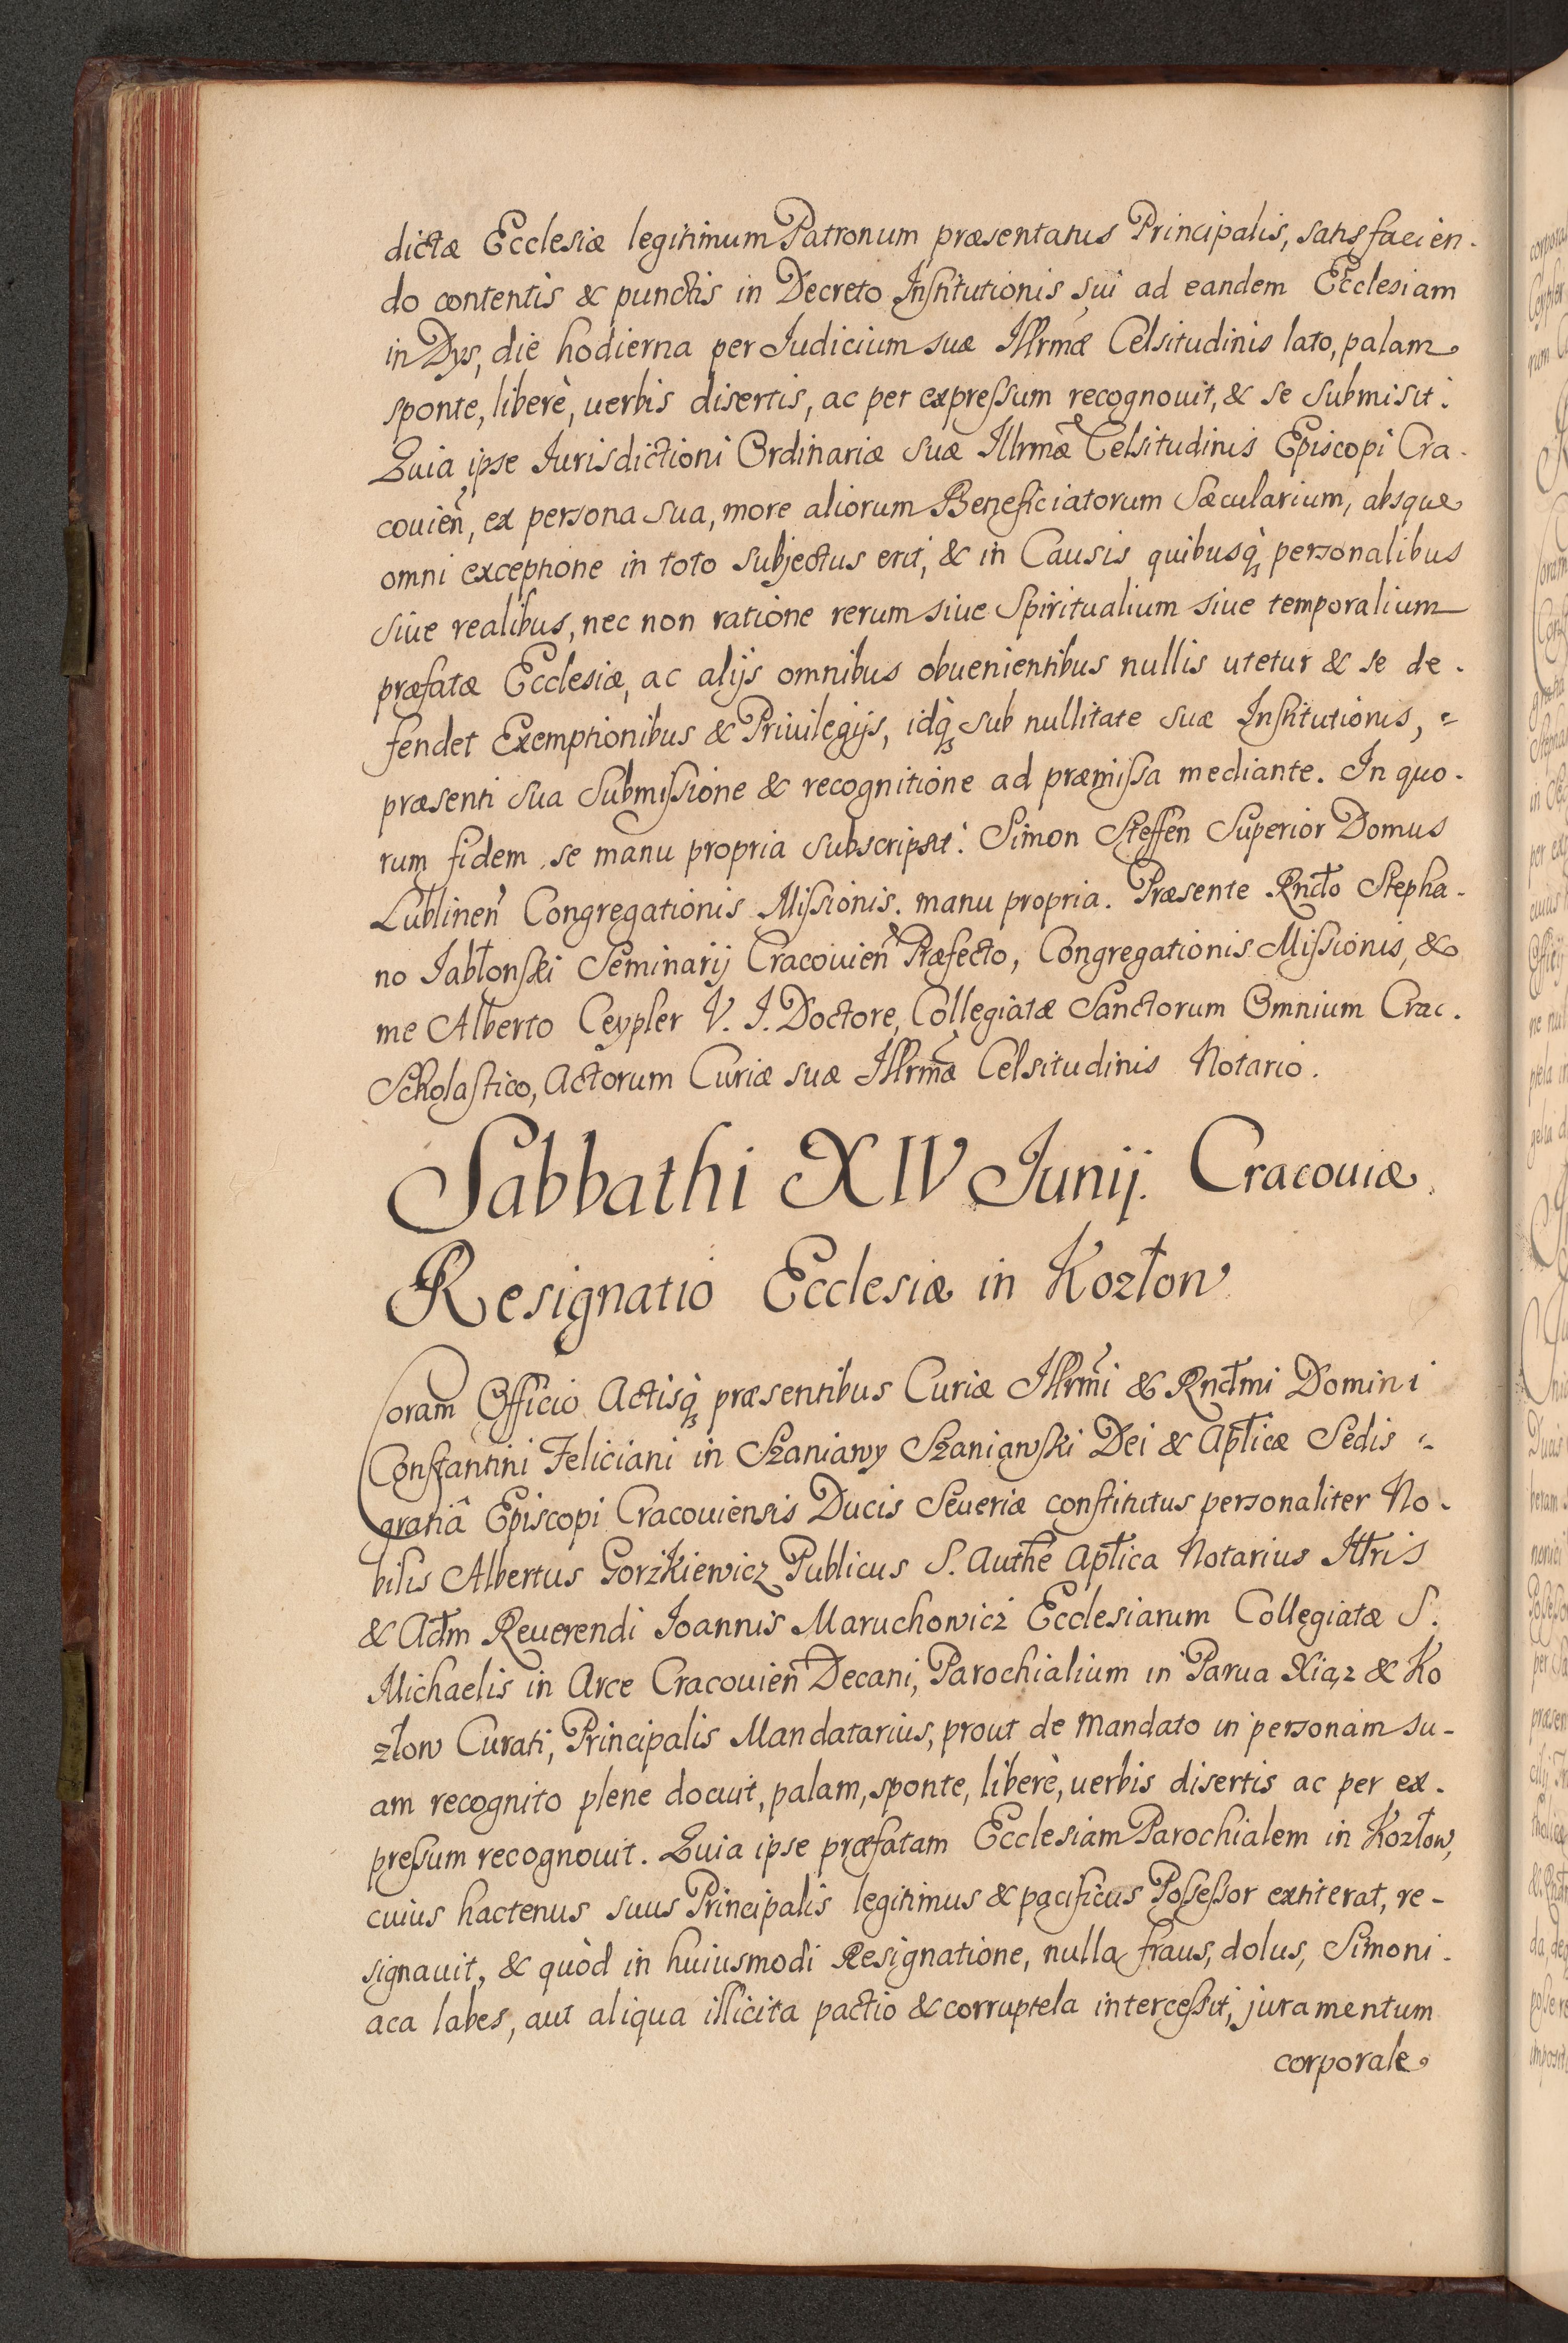 dictæ Ecclesiæ legitimum Patronum præsentatus Principalis, satisfacien-
do contentis & punctis in Decreto Institutionis sui ad eandem Ecclesiam
in Dys, die hodierna per Judicium suæ Illrmæ Celsitudinis lato, palam
sponte, liberè, uerbis disertis, ac per expressum recognouit, & se submisit.
Quia ipse Jurisdictioni Ordinariæ suæ Illrmæ Celsitudinis Episcopi Cra-
couien, ex persona sua, more aliorum Beneficiatorum Sæcularium, absque
omni exceptione in toto subjectus erit, & in Causis quibusq; personalibus
siue realibus, nec non ratione rerum siue Spiritualium siue temporalium
præfatæ Ecclesiæ, ac alijs omnibus obuenientibus nullis utetur & se de-
fendet Exemptionibus & Priuilegijs, idq; sub nullitate suæ Institutionis,
præsenti sua submissione & recognitione ad præmissa mediante. In quo-
rum fidem se manu propria subscripsit. Simon Steffen Superior Domus
Lublinen Congregationis Missionis. manu propria. Præsente Rndo Stepha-
no Jabłonski Seminarij Cracouien Præfecto, Congregationis Missionis, &
me Alberto Ceypler V. J. Doctore, Collegiatæ Sanctorum Omnium Crac.
Scholastico, Actorum Curiæ suæ Illrmæ Celsitudinis Notario.
Sabbathi XIV Junij. Cracouiæ.
Resignatio Ecclesiæ in Kozłow
Coram Officio Actisq; præsentibus Curiæ Illrmi & Rndmi Domini
Constantini Feliciani in Szaniawy Szaniawski Dei & Aplicæ Sedis
gratiâ Episcopi Cracouiensis Ducis Seueriæ constitutus personaliter No-
bilis Albertus Gorzkiewicz Publicus S. Authe Aplica Notarius Illris
& Adm Reuerendi Joannis Maruchowicz Ecclesiarum Collegiatæ S.
Michaelis in Arce Cracouien Decani, Parochialium in Parua Xiąz & Ko
złow Curati, Principalis Mandatarius, prout de Mandato in personam su-
am recognito plene docuit, palam, sponte, liberè, uerbis disertis ac per ex-
pressum recognouit. Quia ipse præfatam Ecclesiam Parochialem in Kozłow,
cuius hactenus suus Principalis legitimus & pacificus Possessor extiterat, re-
signauit, & quòd in huiusmodi Resignatione, nulla fraus, dolus, Simoni-
aca labes, aut aliqua illicita pactio & corruptela intercessit, juramentum
corporale